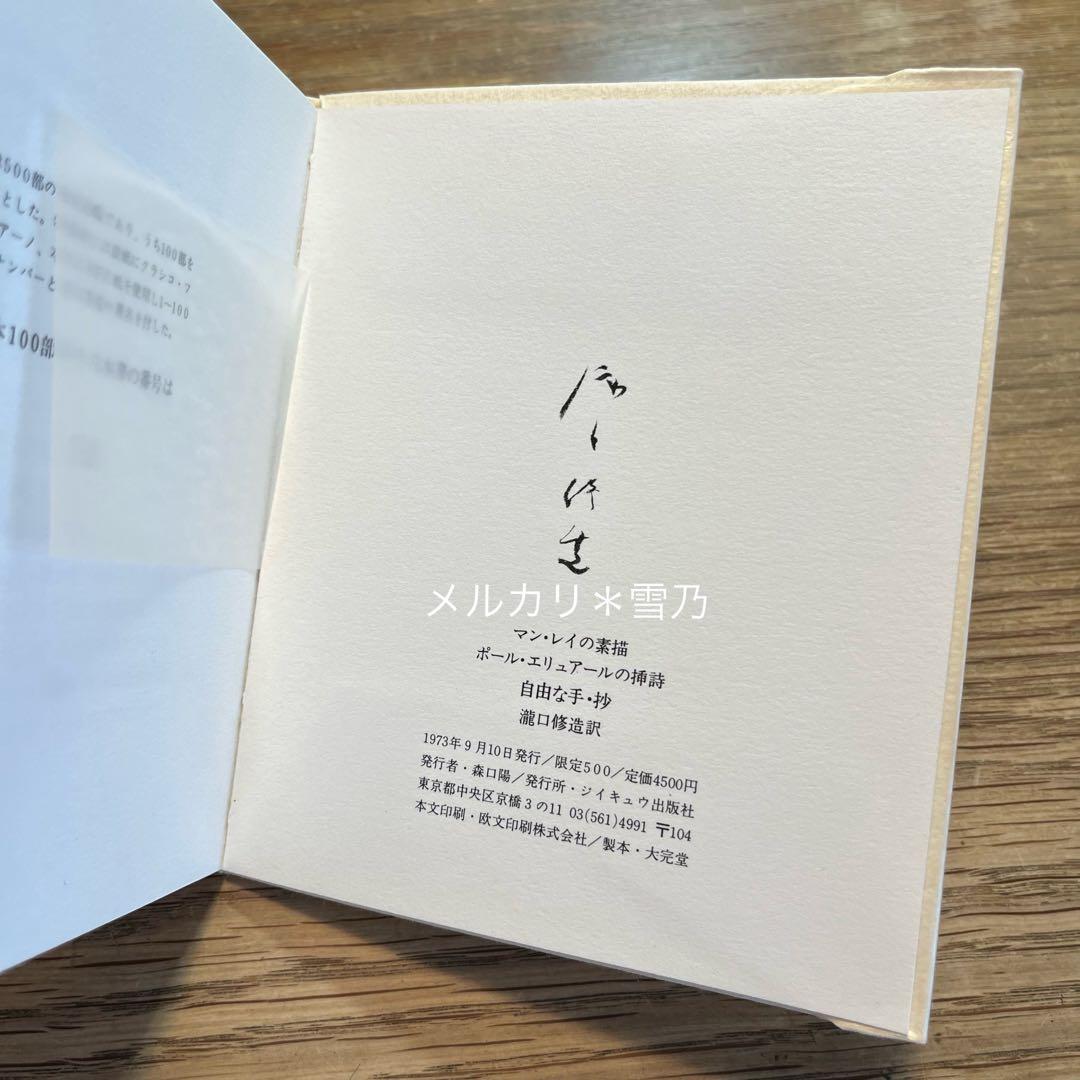 500部の
とした。
アーノ、
ナンバーと
であり、うち100部を
クラシコ・フ
使用し1~100
署名を付した。
本100部
番号は
瀧口修造
メルカリ＊雪乃
マン・レイの素描
ポール・エリュアールの挿詩
自由な手・抄
瀧口修造訳
1973年9月10日発行／限定500／定価4500円
発行者・森口陽／発行所・ジイキュウ出版社
東京都中央区京橋3の11 03(561)4991 〒104
本文印刷・欧文印刷株式会社／製本・大完堂